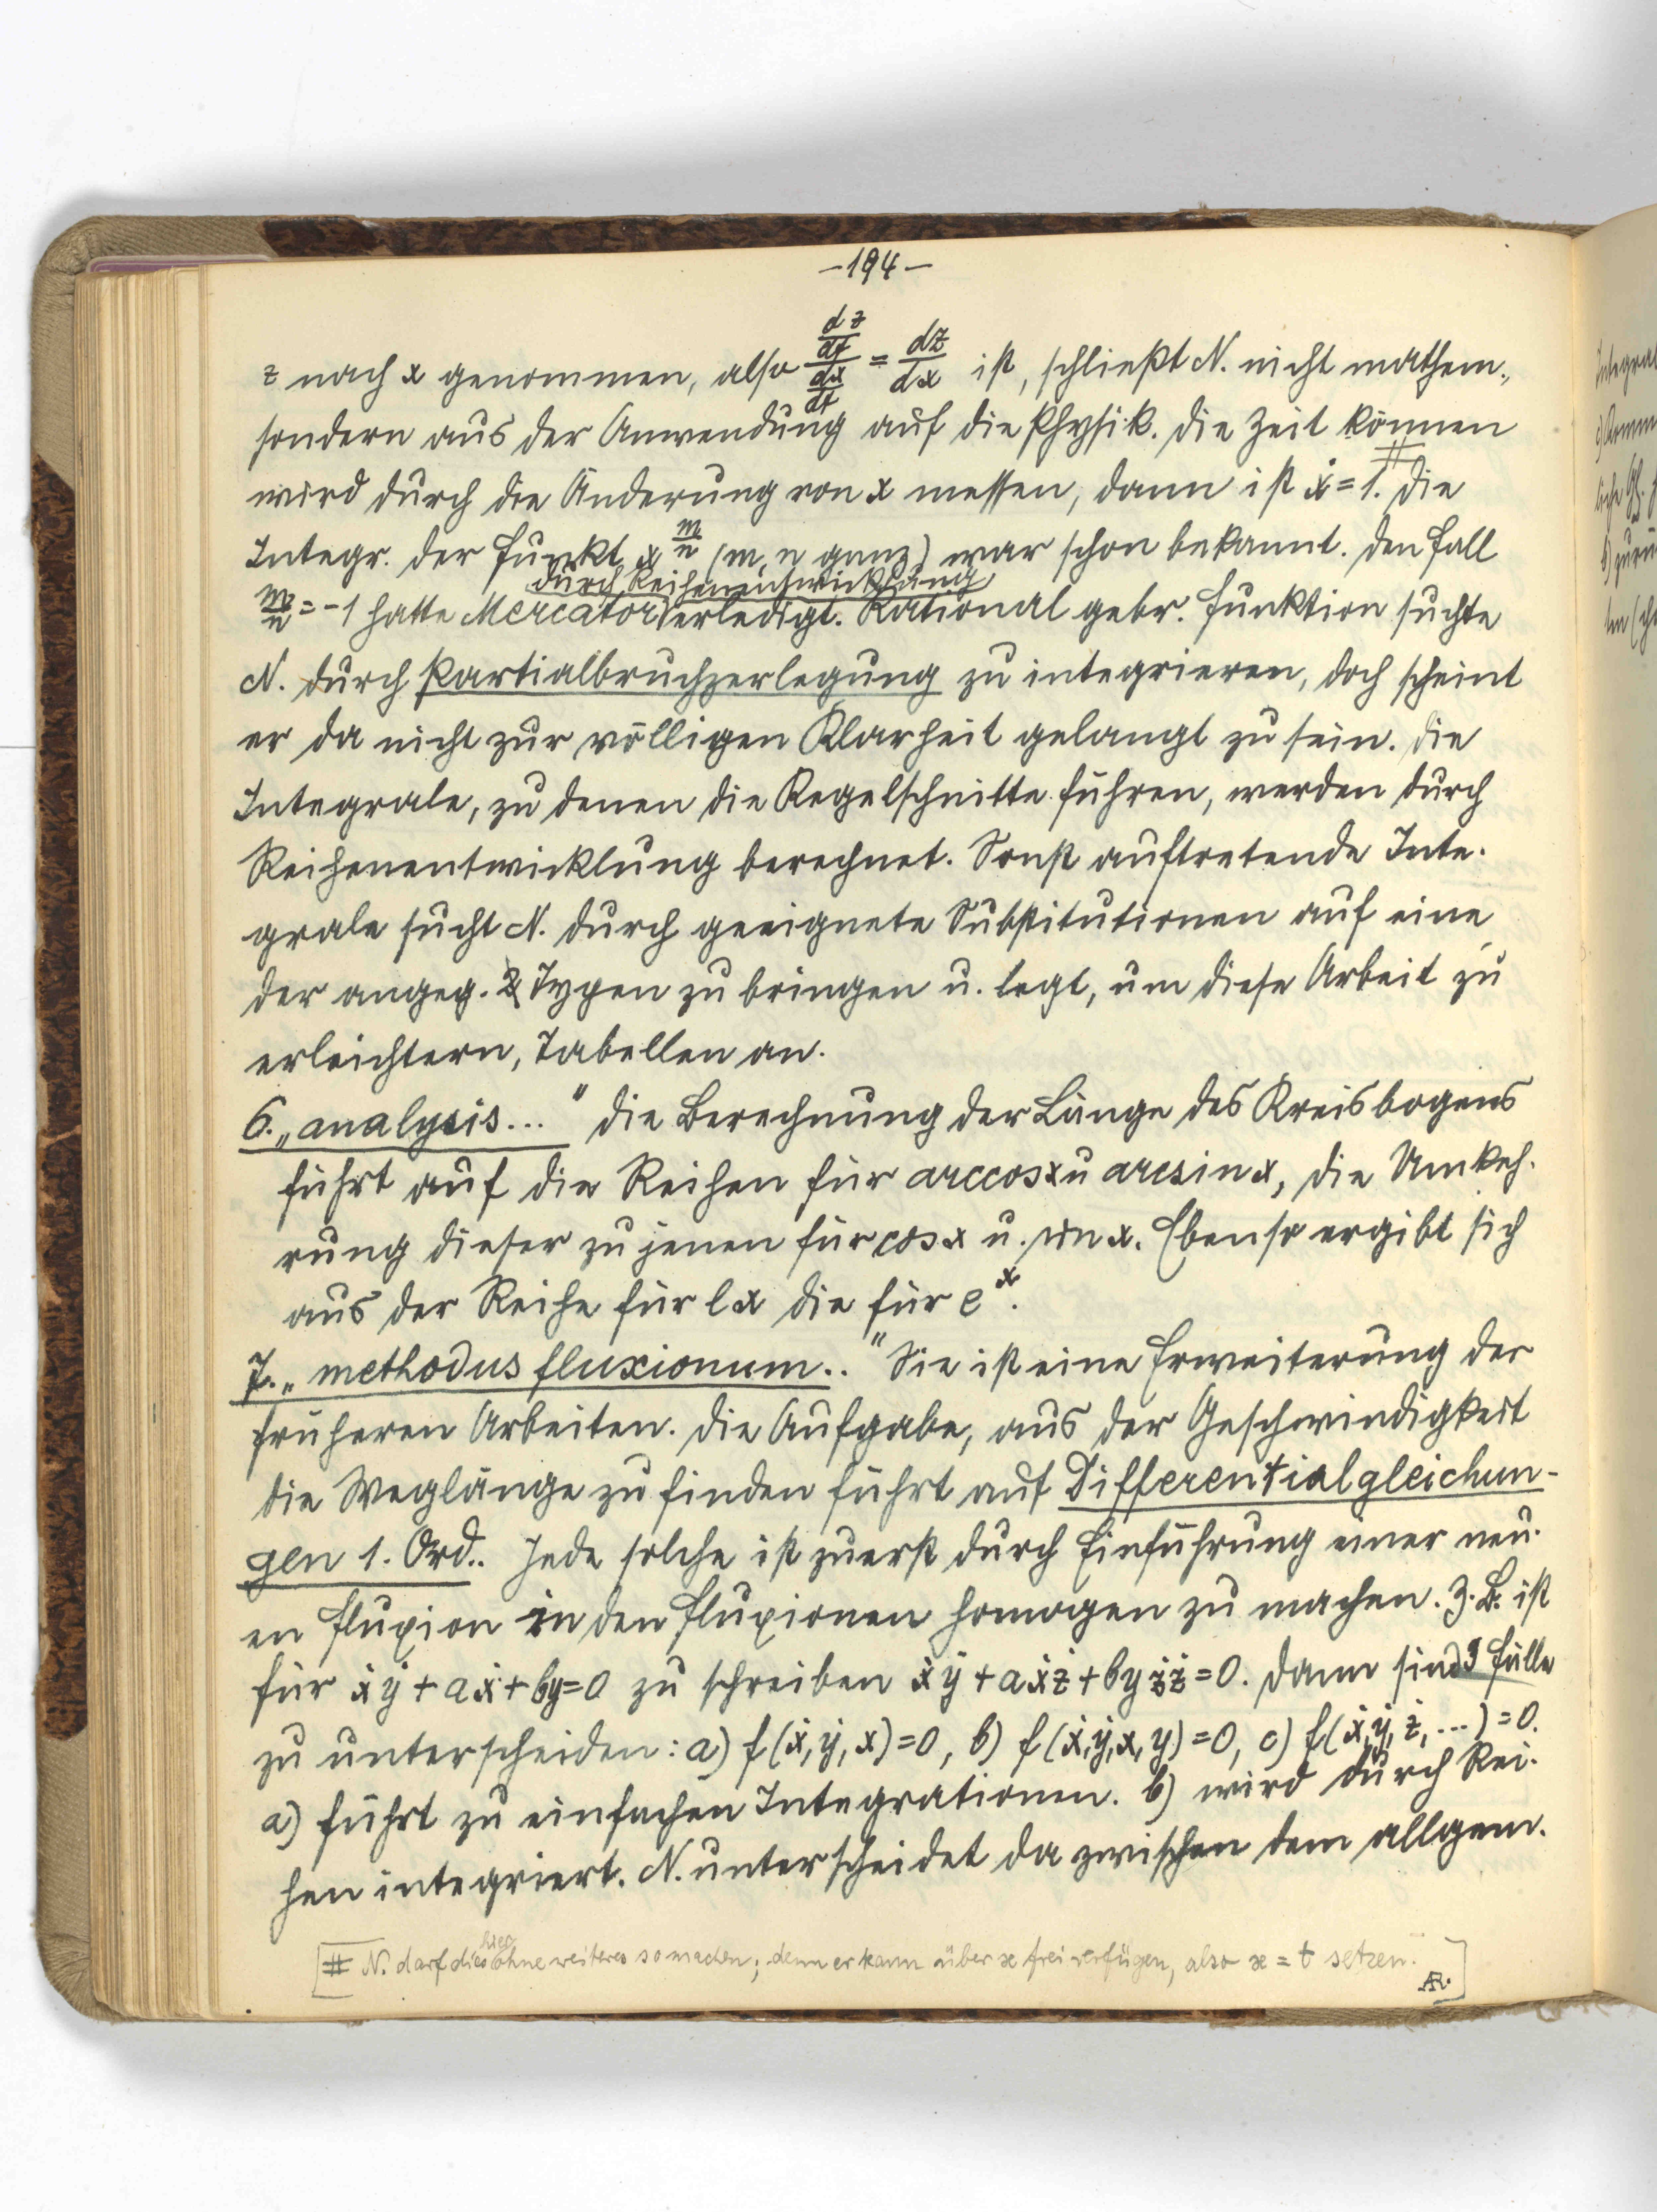 -194-
z nach x genommen, also (dz/dt)/(dx/dt) = dz/dx ist, schließt N. nicht mathem.,
sondern aus der Anwendung auf die Physik. Die Zeit können
wird durch die Änderung von x messen, dann ist ẋ=1.# Die
Integr. der Funkt. x^(m/n) (m, n ganz) war schon bekannt. Den Fall
durch Reihenentwicklung
m/n = -1 hatte Mercator erledigt. Rational gebr. Funktion suchte
N. durch Partialbruchzerlegung zu integrieren, doch scheint
er da nicht zur völligen Klarheit gelangt zu sein. Die
Integrale, zu denen die Kegelschnitte führen, werden durch
Reihenentwicklung berechnet. Sonst auftretende Inte-
grale sucht N. durch geeignete Substitutionen auf eine
der angeg. 2 Typen zu bringen u. legt, um diese Arbeit zu
erleichtern, Tabellen an.
6. „analysis..." Die Berechnung der Länge des Kreisbogens
führt auf die Reihen für arccosx u arcsinx, die Umkeh-
rung dieser zu jenen für cosx u. sin x. Ebenso ergibt sich
aus der Reihe für lx die für e^x.
7. „methodus fluxionum.." Sie ist eine Erweiterung der
früheren Arbeiten. Die Aufgabe, aus der Geschwindigkeit
die Weglänge zu finden führt auf Differentialgleichun-
gen 1. Ord.. Jede solche ist zuerst durch Einführung einer neu-
en Fluxion in den Fluxionen homogen zu machen. Z.B. ist
für ẋẏ+aẋ+by=0 zu schreiben ẋẏ+aẋż+byżż=0. Dann sind 3 Fälle
zu unterscheiden: a) f(ẋ, ẏ, x)=0, b) f(ẋ,ẏ,x,y)=0, c) f(ẋ,ẏ,ż,...)=0.
a) führt zu einfachen Integrationen. b) wird durch Rei-
hen integriert. N. unterscheidet da zwischen dem allgem.
hier
[# N. darf dies ohne weiteres so machen; denn er kann über x frei verfügen, also x = t setzen.
AR.]